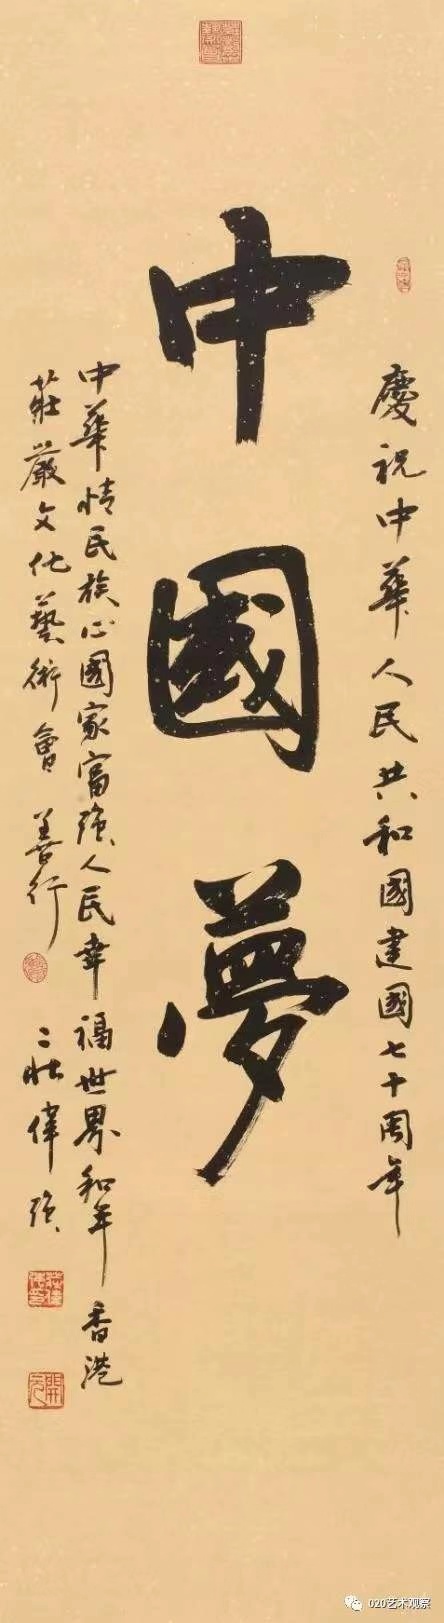 慶祝中華人民共和國建國七十周年
中國夢
中華情民族心國家富强人民幸福世界和平香港
莊嚴文化藝術會 善行 偉强
020艺术观察